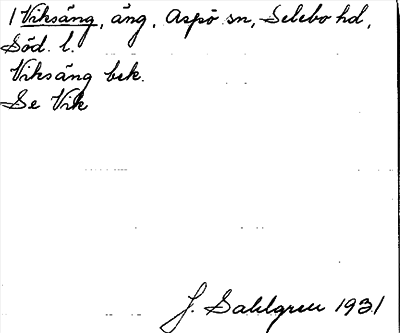 1 Viksäng, äng, Aspö sn, Selebo hd,
Söd. l.
Viksäng bek.
Se Vik
J. Sahlgren 1931